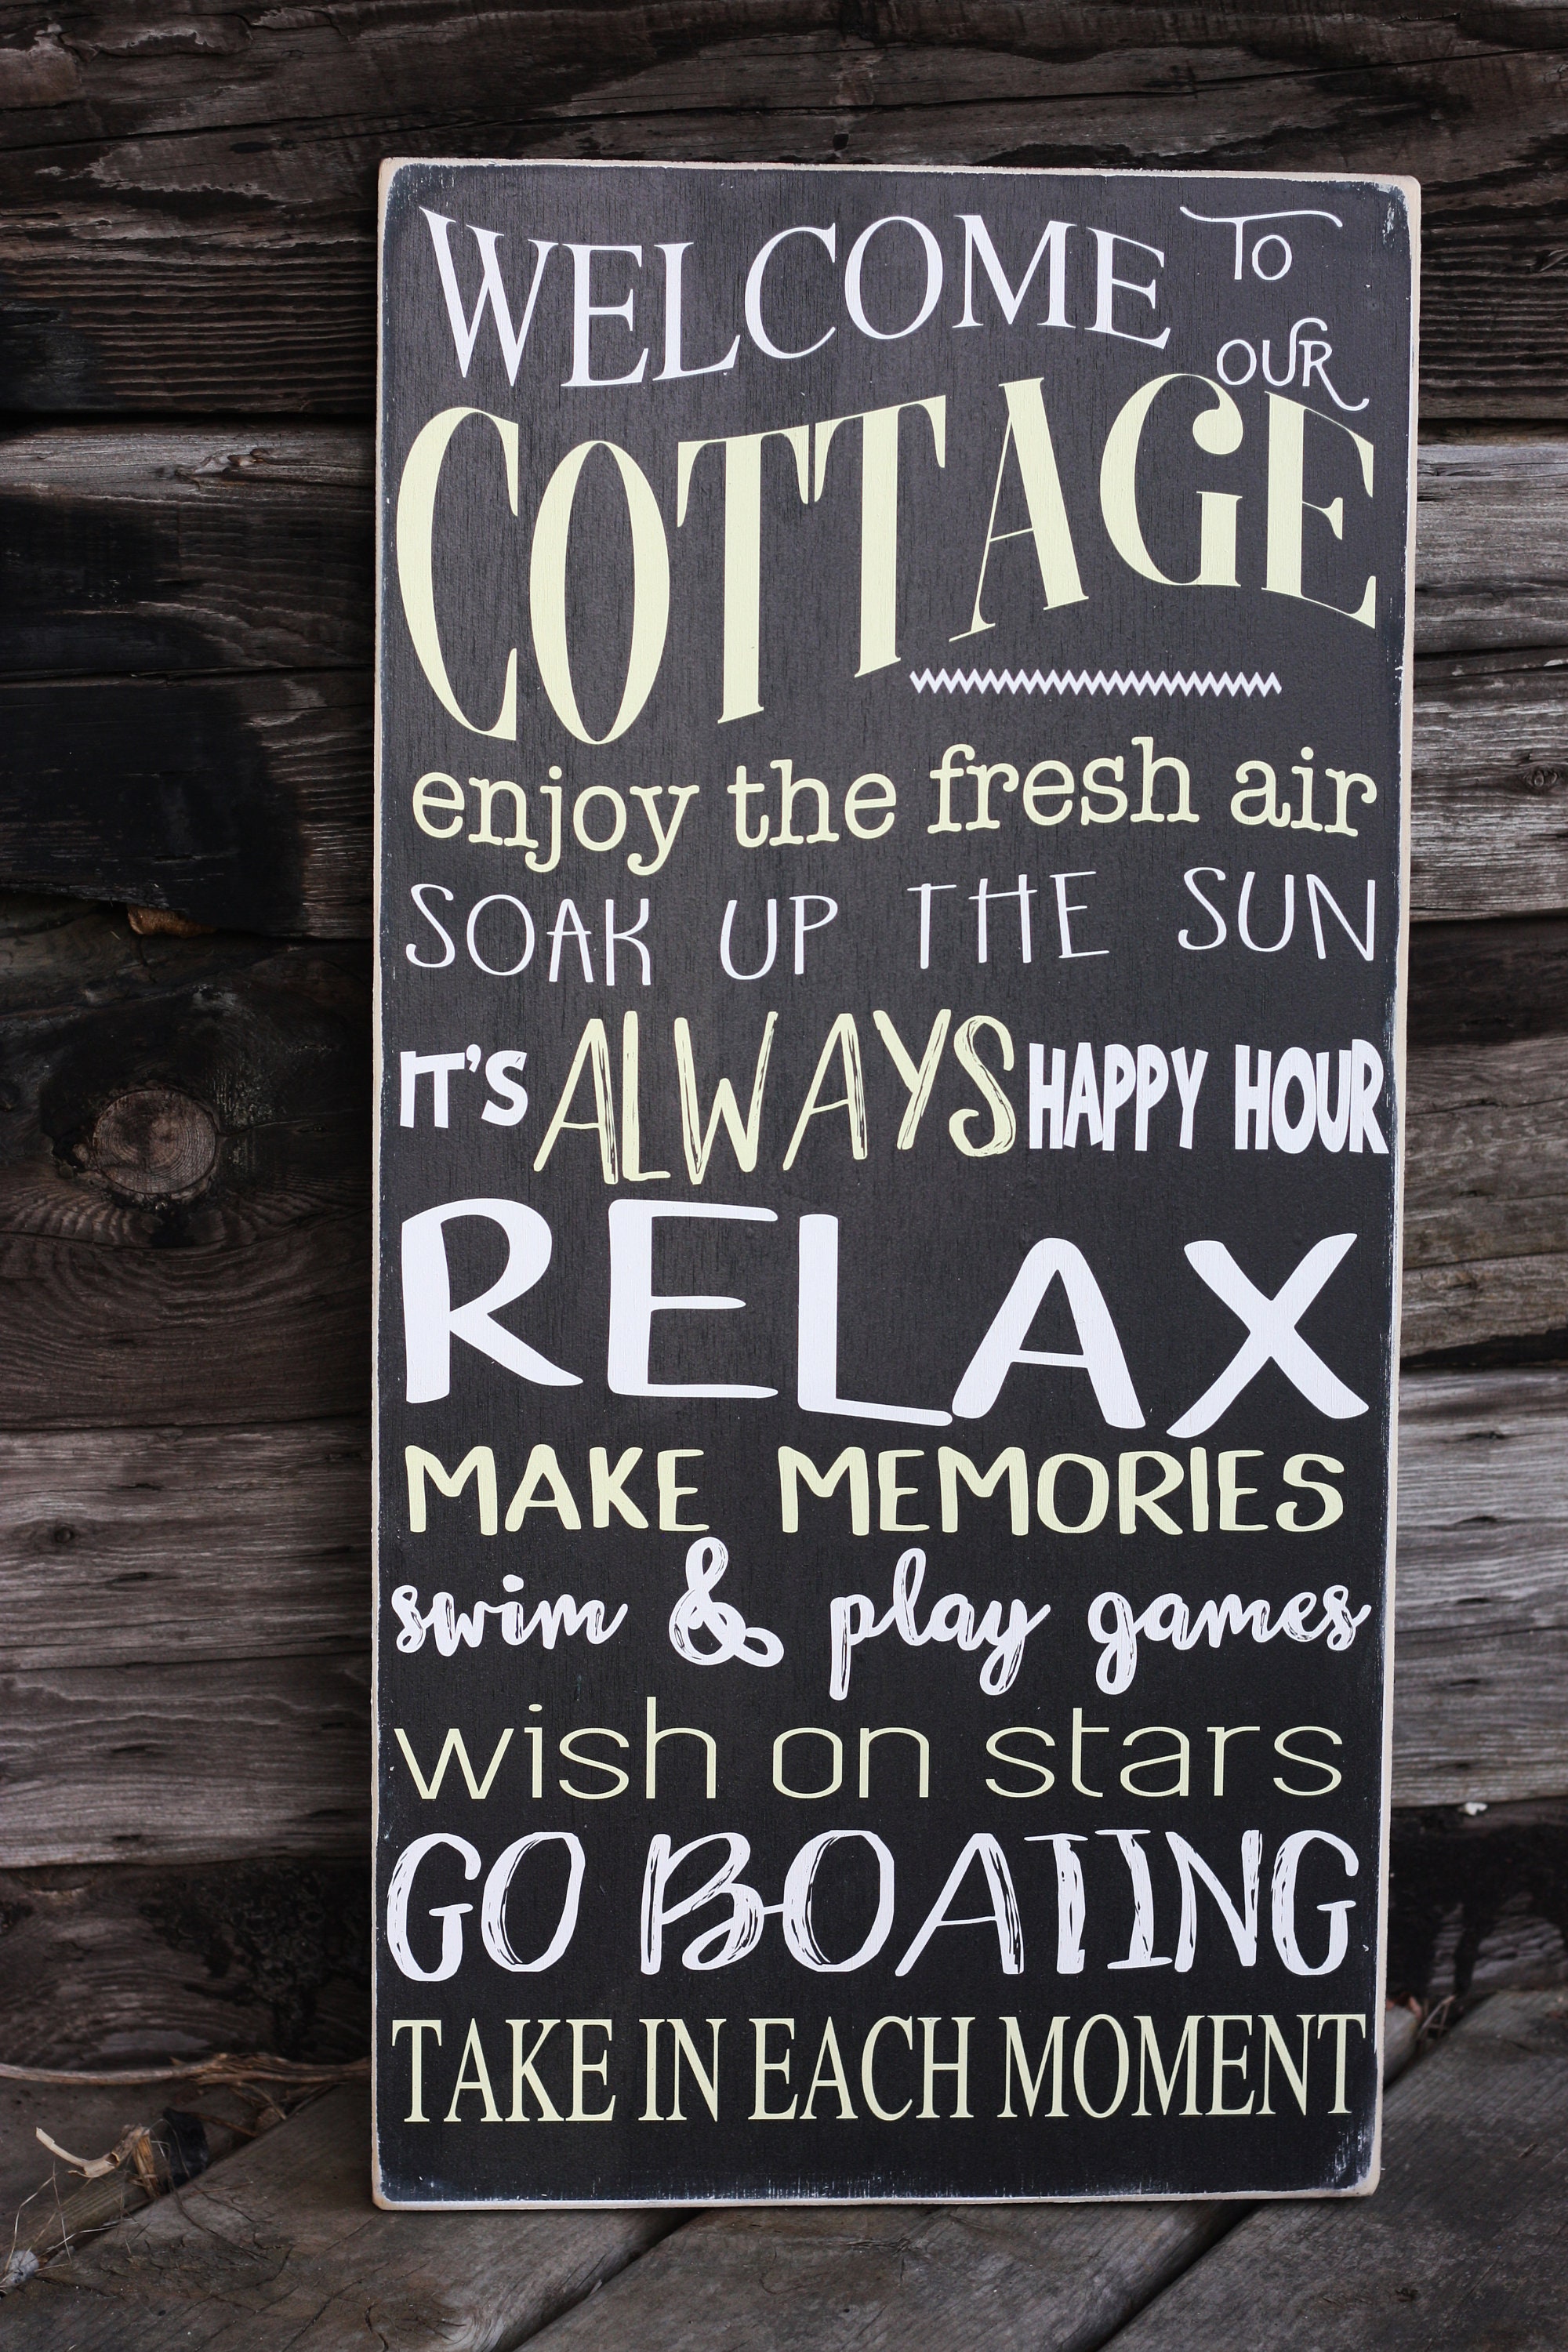 WELCOME TO OUR
COTTAGE
enjoy the fresh air
SOAK UP THE SUN
IT'S ALWAYS HAPPY HOUR
RELAX
MAKE MEMORIES
swim & play games
wish on stars
GO BOATING
TAKE IN EACH MOMENT